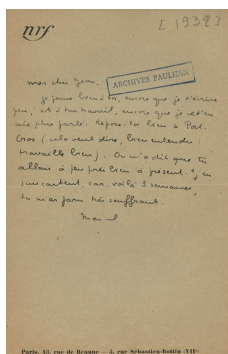 nrf
[1938]
ARCHIVES PAULHAN
mon cher Jean,
je pense bien à toi, encore que je t'écrive
peu, et à ton travail, encore que je ne t'en
aie plus parlé. Repose-toi bien à Port-
Cros (cela veut dire, bien entendu :
travaille bien). On m'a dit que tu
allais à peu près bien à présent. J'en
suis content, car voilà 3 semaines,
tu m'as paru très souffrant.
Marcel
Paris, 43, rue de Beaune — 5, rue Sébastien-Bottin (VIIᵉ)